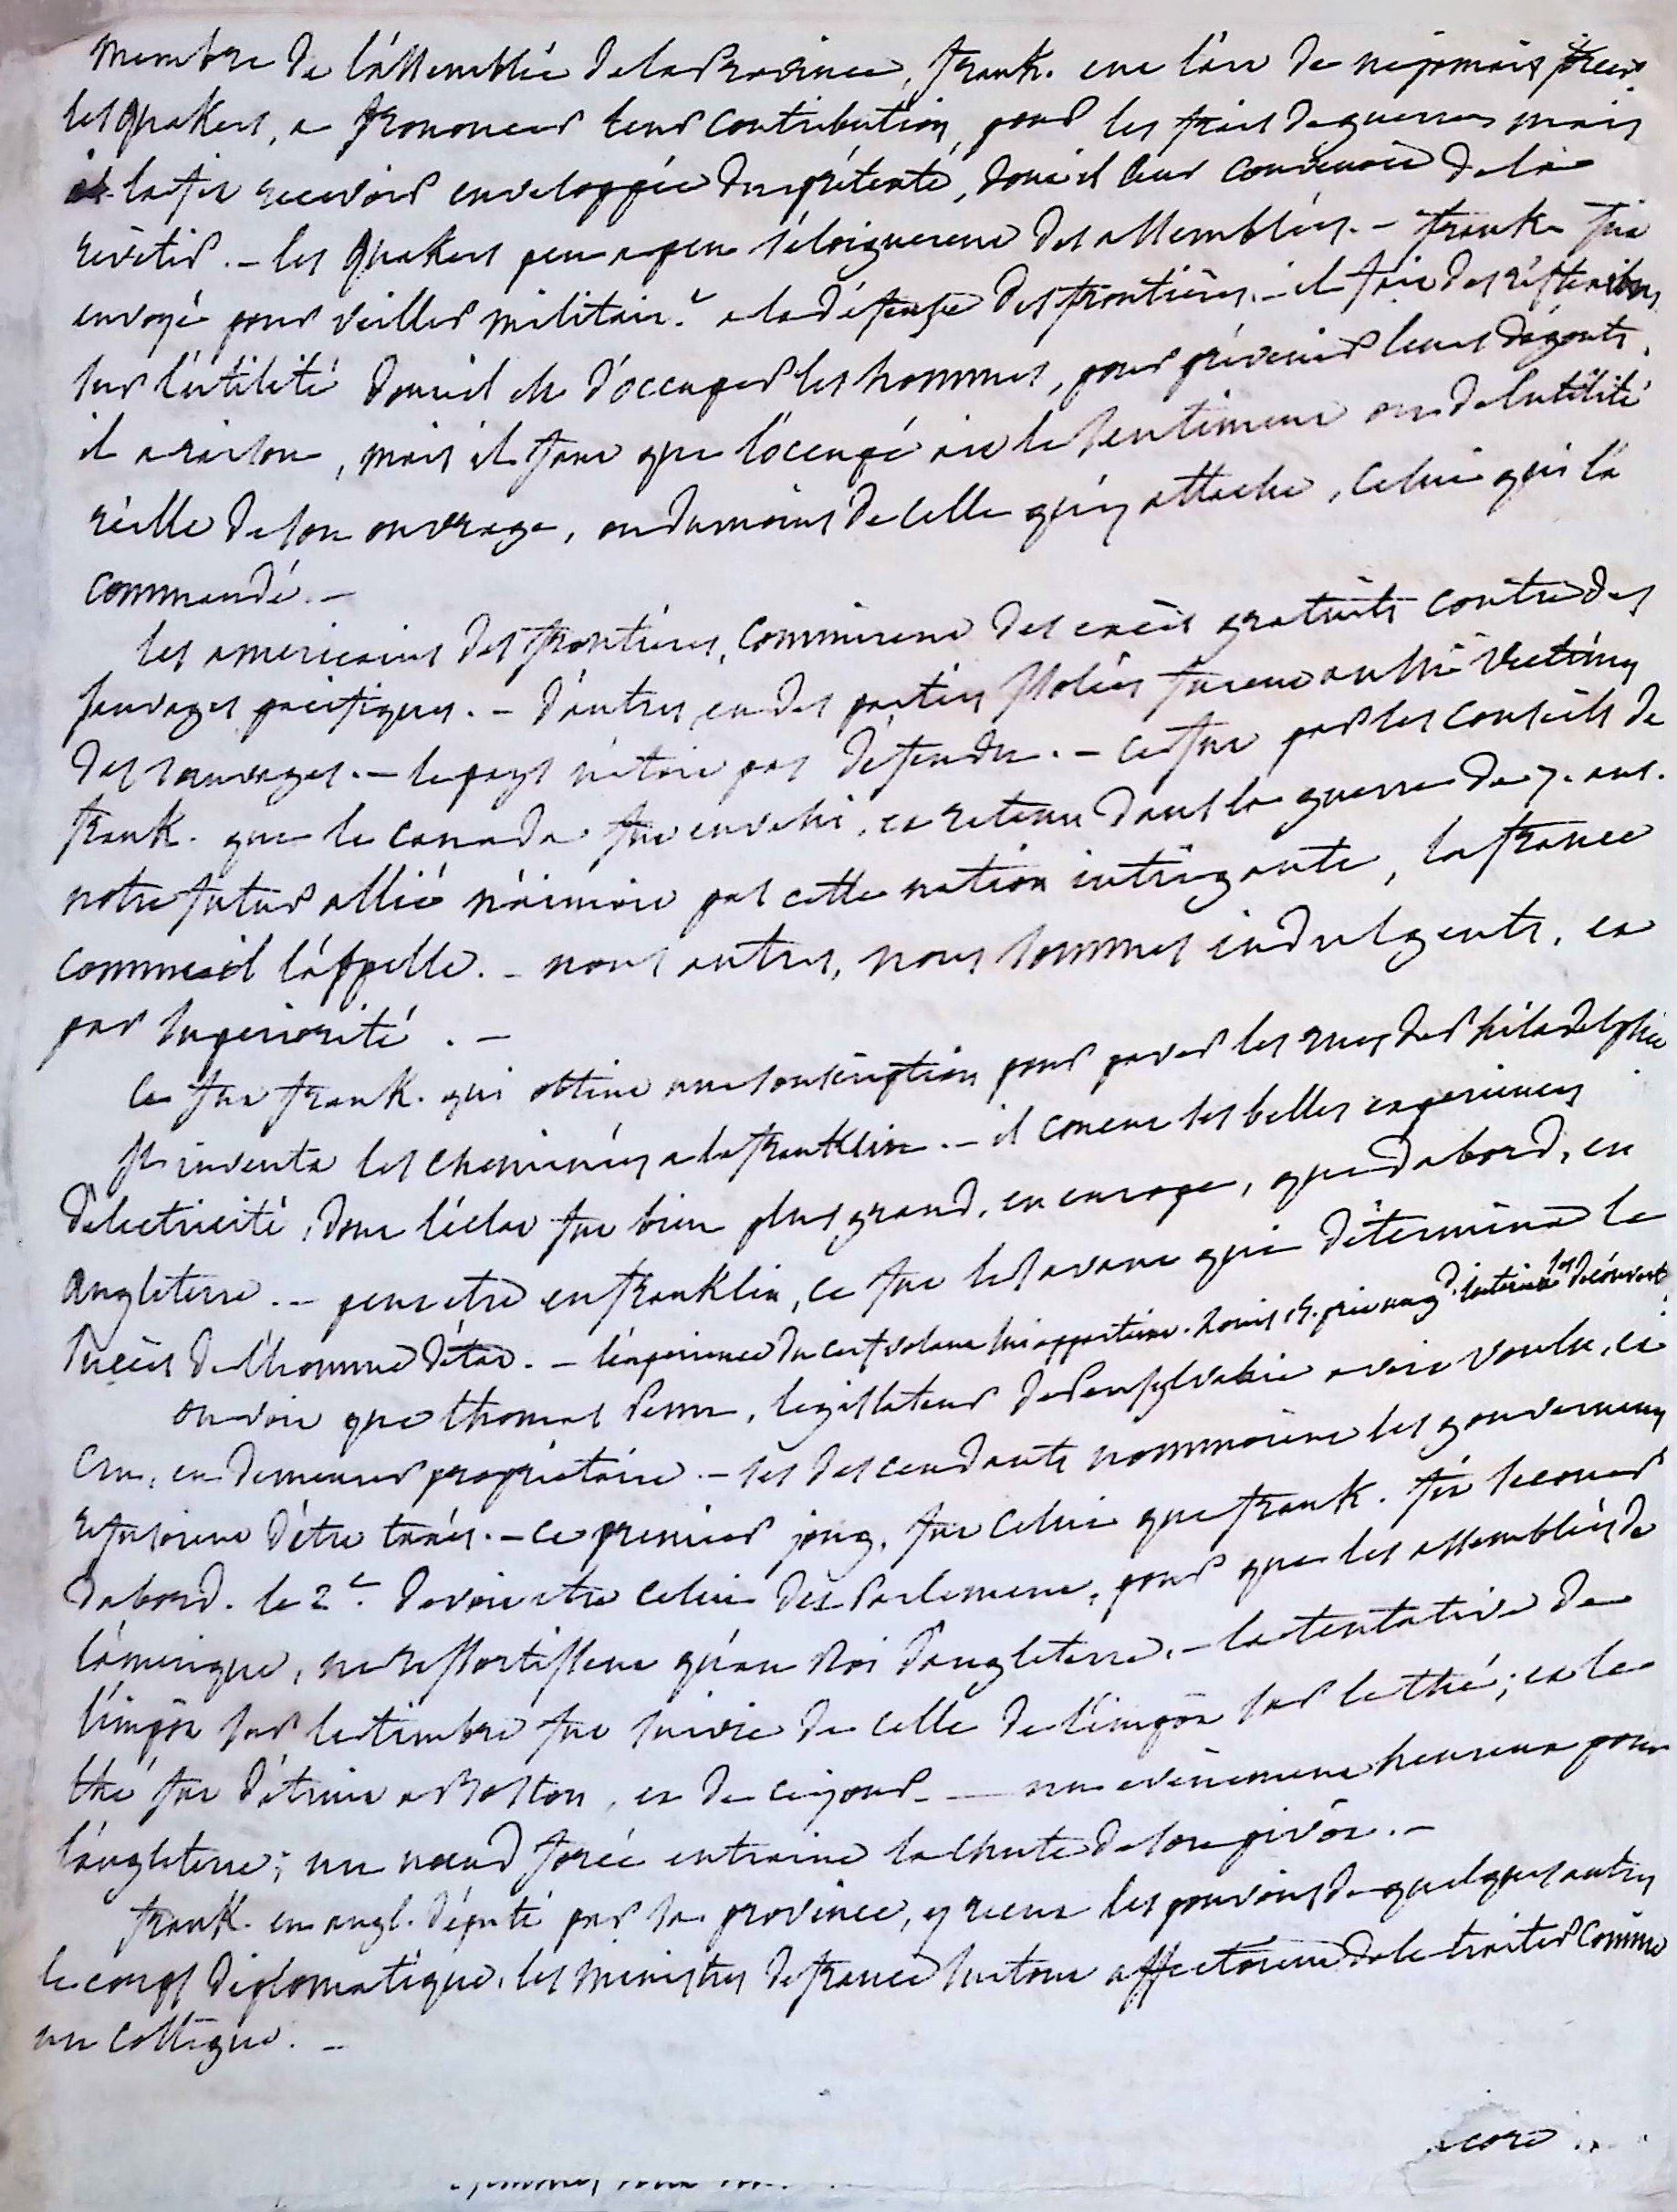 membre de l'assemblée de la Province, frank. eut l'art de ne jamais forcer
les quakers, a prononcer leur contribution, pour les frais de guerres mais
il la fit recevoir enveloppée du prétexte, dont il leur convenoit de la
revêtir. - les quakers peu a peu s'éloignerent des assemblées. - frank. fut
envoyé pour veiller militair.t a la défense des frontières. - il fait des réflexions
sur l'utilité dont il est d'occuper les hommes, pour prévenir leurs dégouts.
il a raison, mais il faut que l'occupé ait le sentiment ou de l'utilité
réelle de son ouvrage, ou du moins de celle qu'y attache, celui qui l'a
commandé. -
les americains des frontières, commirent des excès gratuits contre des
sauvages pacifiques. - d'autres en des parties isolées furent aussi victimes
des sauvages. - le pays n'étoit pas défendu. - ce fut par les conseils de
frank. que le canada fut envahi, et retenu dans la guerre de 7. ans.
notre futur allié n'aimoit pas cette nation intrigante, la france
comme il l'appelle. - nous autres, nous sommes indulgents, et
par superiorité. -
ce fut frank. qui obtint une souscription pour paver les rues de Philadelphie
il inventa les cheminées a la franklin. - il conçut ses belles experiences
d'électricité, dont l'éclat fut bien plus grand, en europe, que d'abord, en
angleterre. - peut etre en franklin, ce fut le savant qui détermina le
succès de l'homme d'état. - l'expérience du cerf volant lui appartient. Louis 15. prit un g.d intérêt a ses découvert.
on voit que thomas Penn, legislateur de Pensylvanie avoit voulu, et
cru, en demeurer proprietaire. - ses descendants nommoient les gouverneurs
refusoient d'être taxés. - ce premier joug, fut celui que frank. fit secouer
d'abord. le 2.e devoit etre celui des Parlement, pour que les assemblées de
l'amérique, ne ressortissent qu'au Roi d'angleterre. - la tentative de
l'impôt sur le timbre fut suivie de celle de l'impôt sur le thé; et le
thé fut détruit a Boston, et de ce jour - un evenement heureux pour
l'angleterre; un nœud forcé entraine la chute de son pivôt. -
frank. en angl. député par sa province, y recut les pouvoirs de quelques autres
le corps diplomatique, les ministres de france surtout affectoient de le traiter comme
un collègue. -